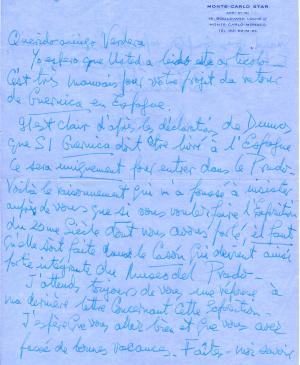 MONTE-CARLO STAR
15, BOULEVARD LOUIS II
MONTE-CARLO-MONACO
Querido amigo Verdera
Yo espero que Usted a leido este articolo -
C'est très mauvais pour votre projet de retour
de Guernica en Espagne.
Il est clair d'après les déclarations de Dumas
que SI Guernica doit être livré à l'Espagne
ce sera uniquement pour entrer dans le Prado -
Voilà le raisonnement qui m'a poussé à insister
auprès de vous : que si vous voulez faire l'exposition
du 20me siècle dont vous avez parlé, il faut
qu'elle soit faite dans le Cason qui devient ainsi
partie intégrante du Museo del Prado -
J'attends toujours de vous une réponse à
ma dernière lettre concernant cette exposition -
J'espère que vous allez bien et que vous avez
passé de bonnes vacances. Faites-moi savoir